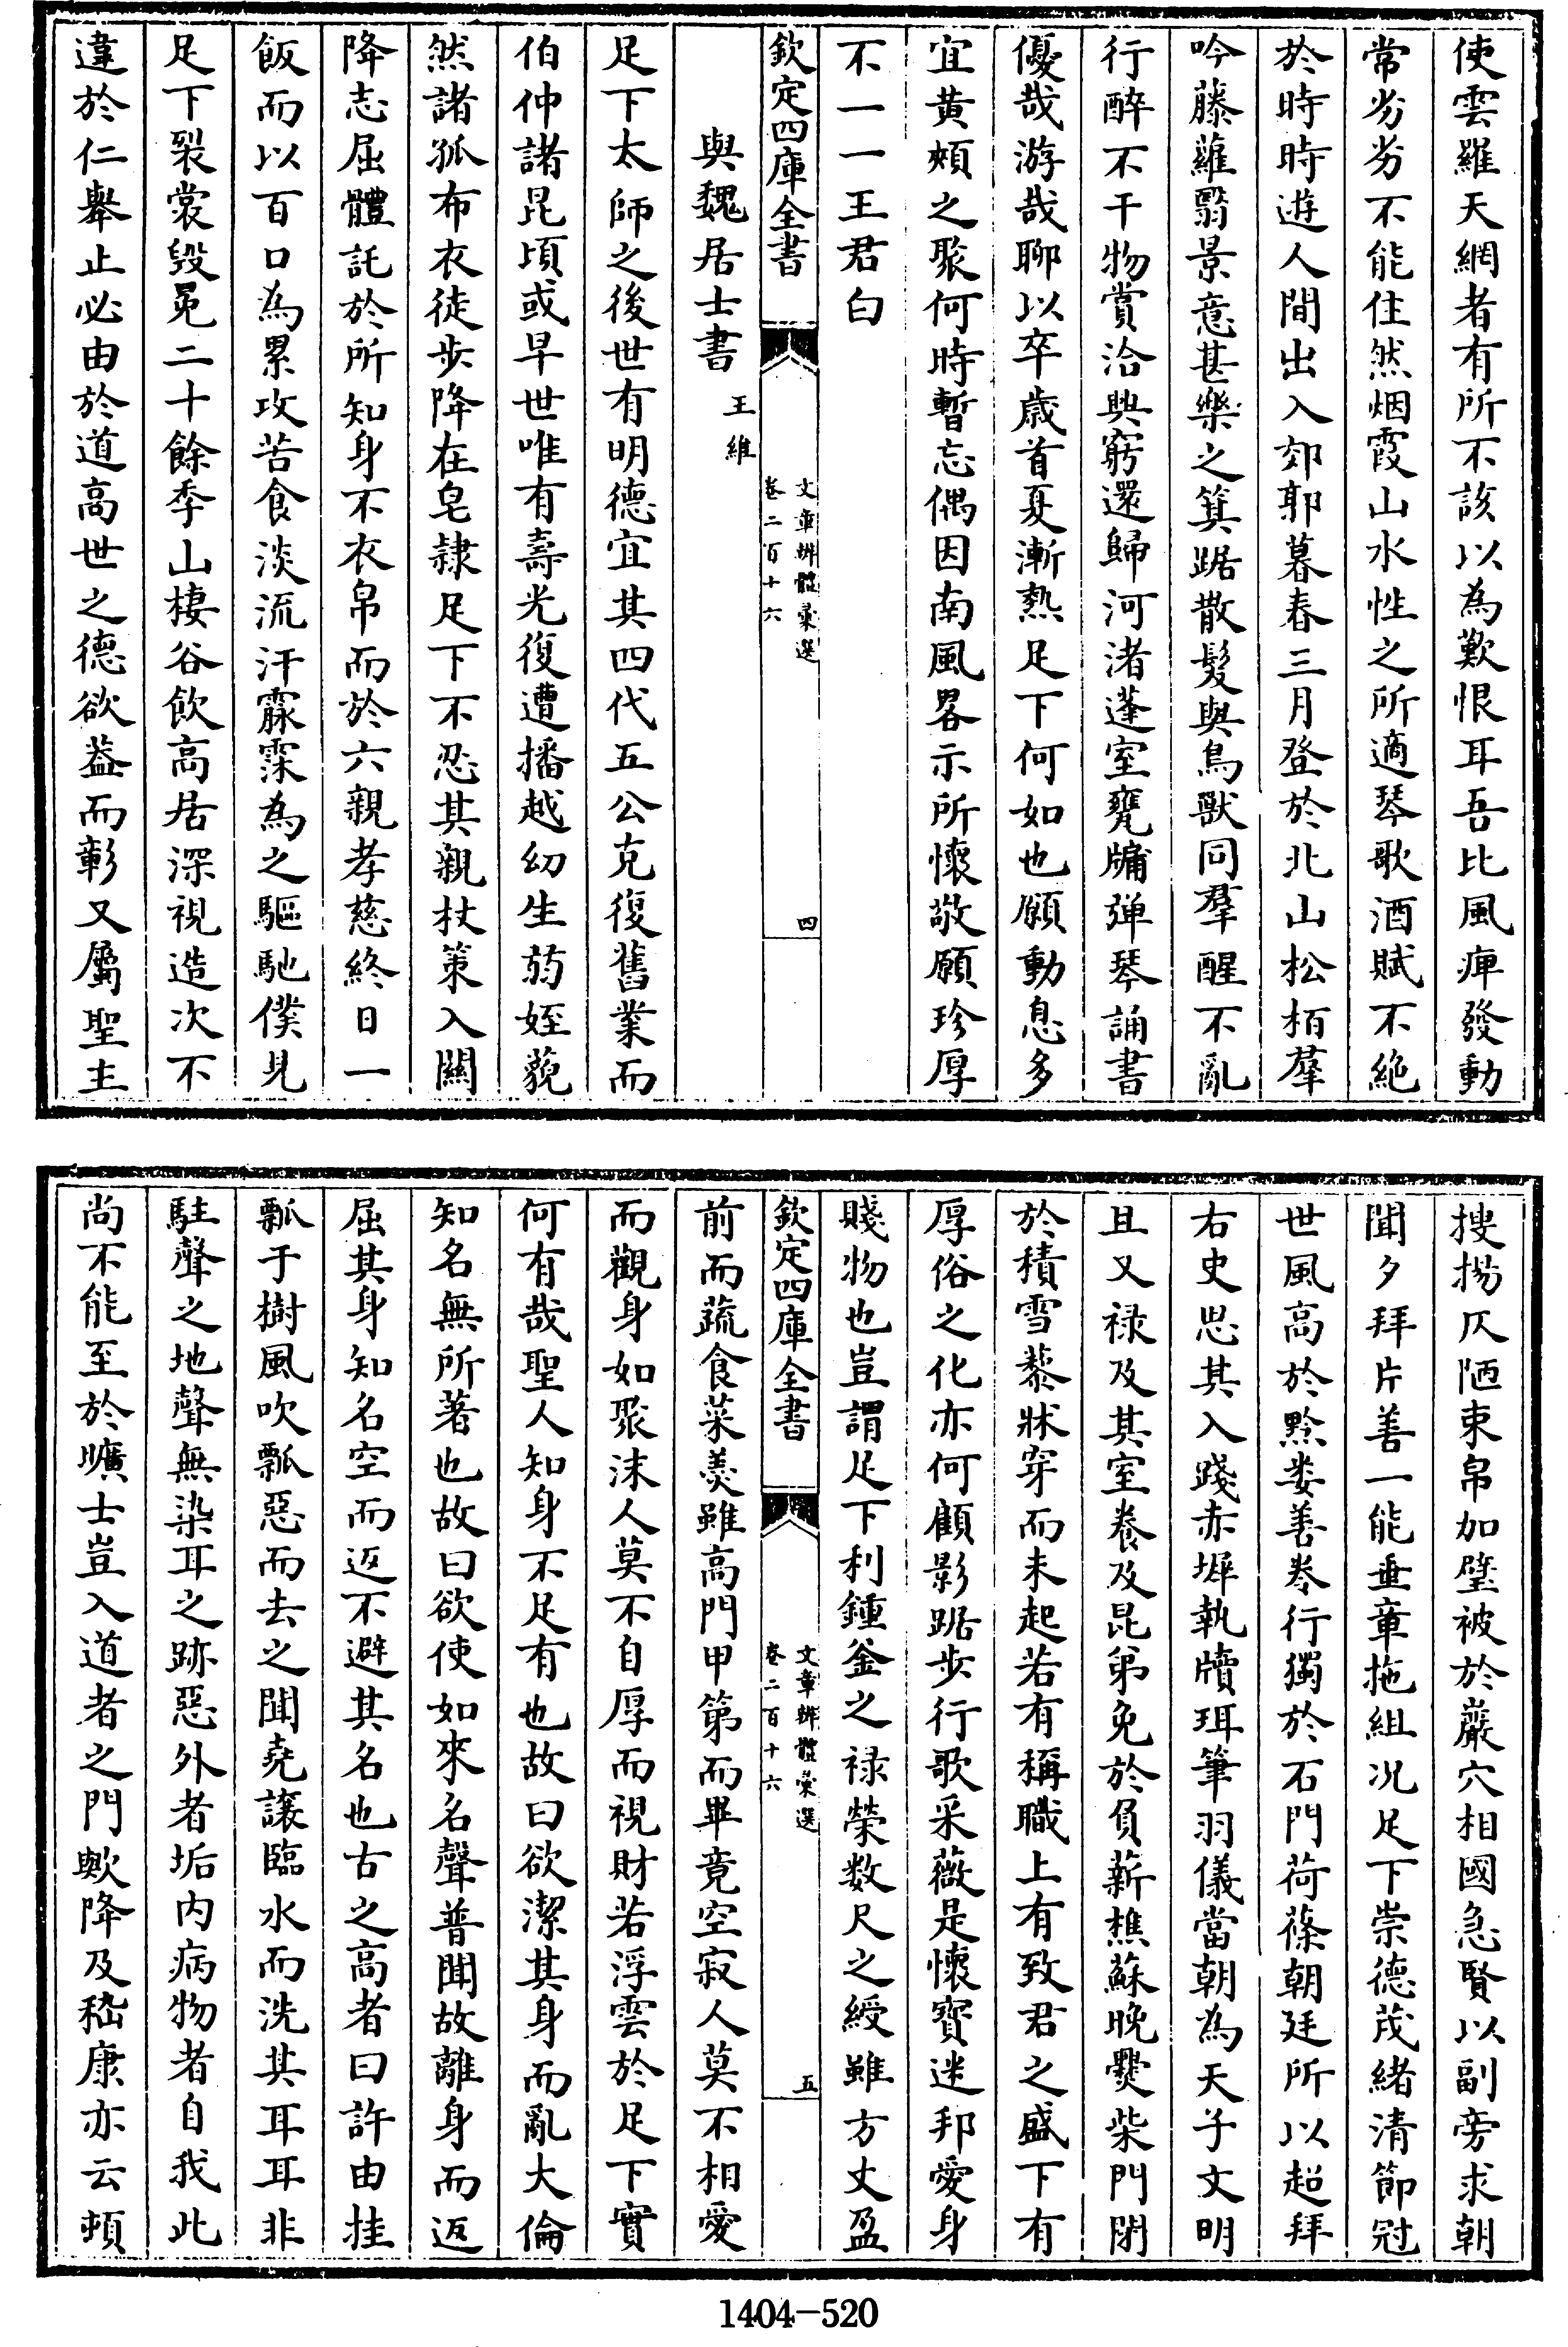 使雲羅天網者有所不該以為歎恨耳吾比風痺發動
常劣劣不能住然烟霞山水性之所適琴歌酒賦不絶
於時時遊人間出入郊郭暮春三月登於北山松栢羣
吟藤蘿翳景意甚樂之箕踞散髮與鳥獸同羣醒不亂
行醉不干物賞洽興窮還歸河渚蓬室甕牖弹琴誦書
優哉游哉聊以卒歲首夏漸熱足下何如也願動息多
宜黄頰之聚何時暫忘偶因南風畧示所懷敬願珍厚
不一一王君白
欽定四庫全書
文章辨體彙選
卷二百十六
四
與魏居士書
王維
足下太師之後世有明德宜其四代五公克復舊業而
伯仲諸昆頃或早世唯有壽光復遭播越幼生弱姪藐
然諸孤布衣徒步降在皂隷足下不忍其親杖策入關
降志屈體託於所知身不衣帛而於六親孝慈終日一
飯而以百口為累攻苦食淡流汗霢霂為之驅馳僕見
足下裂裳毀冕二十餘季山棲谷飲高居深視造次不
違於仁舉止必由於道高世之德欲葢而彰又屬聖主
搜揚仄陋束帛加璧被於巖穴相國急賢以副旁求朝
聞夕拜片善一能垂章拖組况足下崇德茂緒清節冠
世風高於黔婁善卷行獨於石門荷蓧朝廷所以超拜
右史思其入踐赤墀執牘珥筆羽儀當朝為天子文明
且又禄及其室養及昆弟免於負薪樵蘇晚爨柴門閉
於積雪藜牀穿而未起若有稱職上有致君之盛下有
厚俗之化亦何顧影踞步行歌采薇是懷寳迷邦愛身
賤物也豈謂足下利鍾釜之禄榮数尺之綬雖方丈盈
欽定四庫全書
文章辨體彙選
卷二百十六
五
前而蔬食菜羮雖高門甲第而畢竟空寂人莫不相愛
而觀身如聚沫人莫不自厚而視財若浮雲於足下實
何有哉聖人知身不足有也故曰欲潔其身而亂大倫
知名無所著也故曰欲使如來名聲普聞故離身而返
屈其身知名空而返不避其名也古之高者曰許由挂
瓢于樹風吹瓢惡而去之聞堯讓臨水而洗其耳耳非
駐聲之地聲無染耳之跡惡外者垢内病物者自我此
尚不能至於曠士豈入道者之門歟降及嵇康亦云頓
1404-520